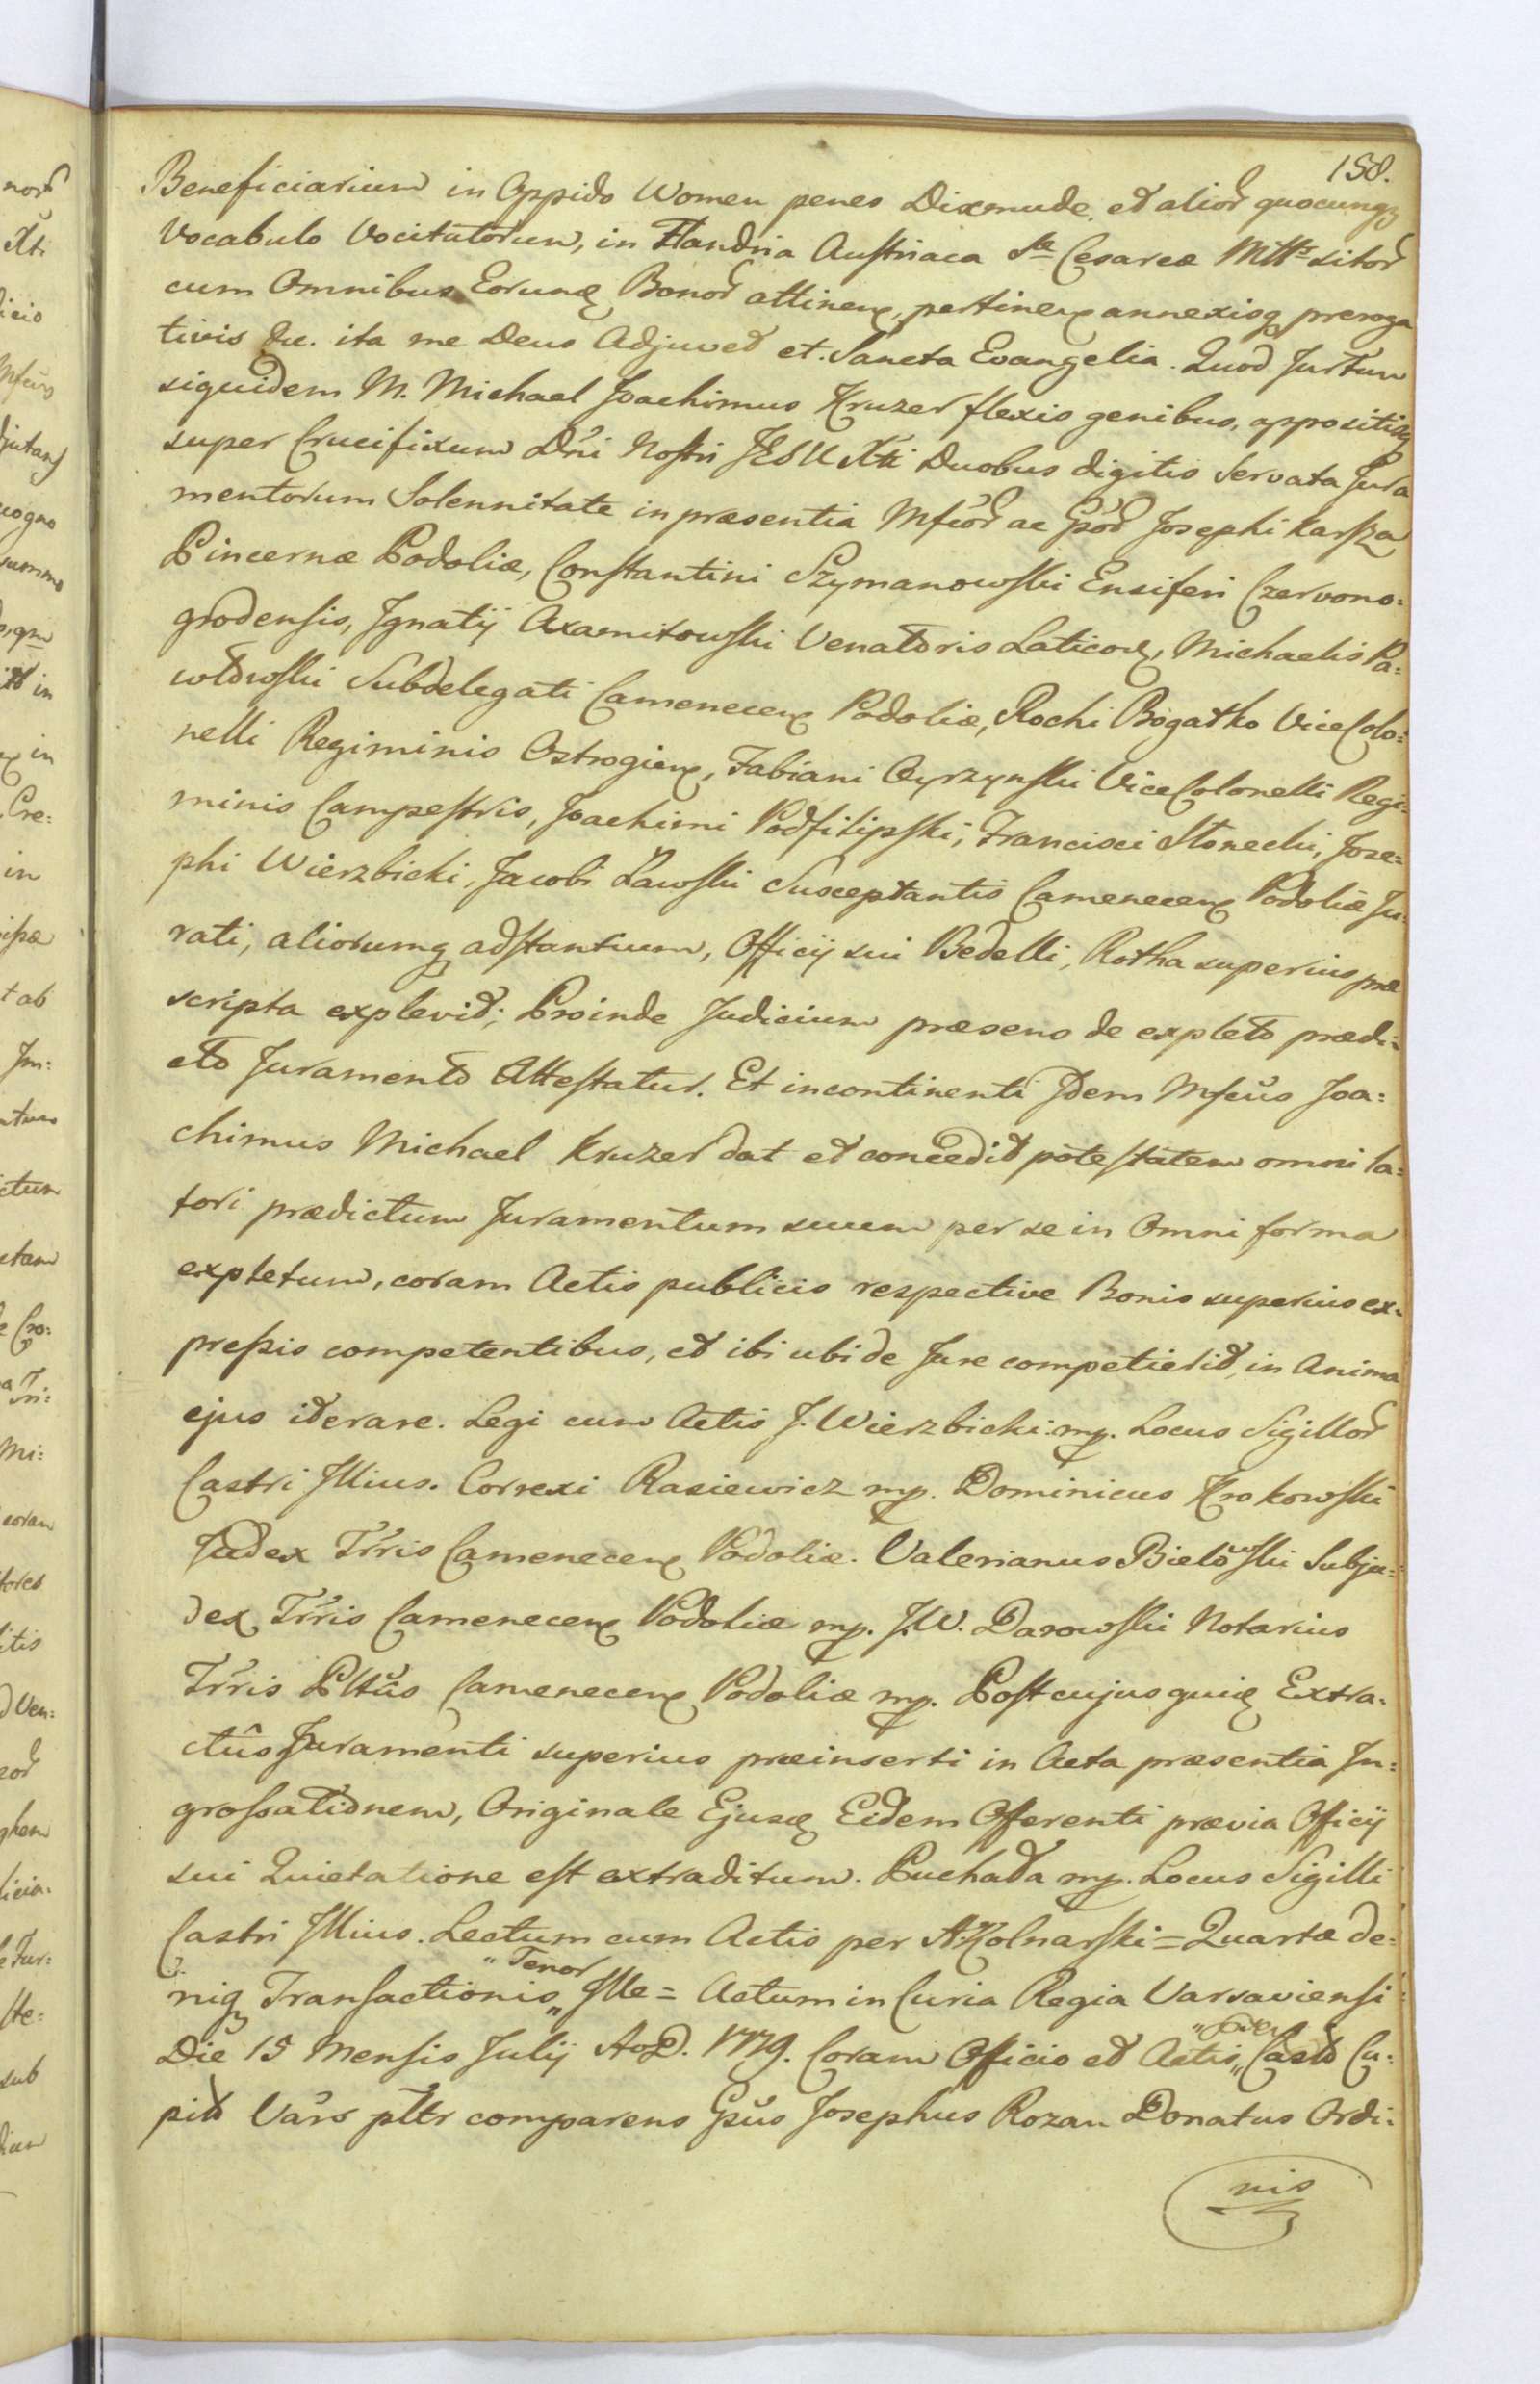 158.
Beneficiarium in Oppido Women penes Dixmude, et alior quocunq
Vocabulo Vocitatorum, in Flandria Austriaca Sæ Cesareæ Mttis sitor
cum Omnibus Eorund Bonor attinen, pertinen annexisq preroga
tivis &c. ita me Deus Adjuvet et Sancta Evangelia. Quod Jurtum
siquidem M. Michael Joachimus Kruzer flexis genibus, appositisq
super Crucifixum Dni Nostri JESU Xti Duobus digitis Servata Jura
mentorum Solennitate in præsentia Mfcor ac Gsor Josephi Karsza
Pincernæ Podoliæ, Constantini Szymanowski Ensiferi Czervono:
grodensis, Jgnatij Axamitowski Venatoris Laticov, Michaelis Pa:
wlowski Subdelegati Camenecen Podoliæ, Rochi Bogatko ViceColo:
nelli Regiminis Ostrogien, Fabiani Oyrzynski ViceColonelli Regi:
minis Campestris, Joachimi Podfilipski, Francisci Słonecki, Jose:
phi Wierzbicki, Jacobi Ławski Susceptantis Camenecen Podoliæ Ju:
rati, aliorumq adstantium, Officij sui Bedelli, Rotha superius præ
scripta explevit; Proinde Judicium præsens de expleto prædi:
cto Juramento Attestatur. Et incontinenti Jdem Mfcus Joa:
chimus Michael Kruzer dat et concedit potestatem omni la:
tori prædictum Juramentum suum per se in Omni forma
expletum, coram Actis publicis respective Bonis superius ex:
pressis competentibus, et ibi ubi de Jure competierit, in Anima
ejus iterare. Legi cum Actis J. Wierzbicki mp. Locus Sigillor
Castri Jllius. Correxi Rasiewicz mp. Dominicus Krokowski
Judex Trris Camenecen Podoliæ. Valerianus Bielowski Subju:
dex Trris Camenecen Podoliæ mp. J.W. Darowski Notarius
Trris Pltus Camenecen Podoliæ mp. Post cujus quid Extra:
ctus Juramenti superius præinserti in Acta præsentia Jn:
grossationem, Originale Ejusd Eidem Offerenti prævia Officij
sui Quietatione est extraditum. Puchała mp. Locus Sigilli
Castri Jllius. Lectum cum Actis per A. Kolnarski = Quartæ de:
niq Transactionis „Tenor„ Jlle = Actum in Curia Regia Varsaviensi
Die 15 Mensis Julij AoD. 1779. Coram Officio et Actis Castr Ca:
pit Vars pltr comparens Gsus Josephus Rozan Donatus Ordi:
nis